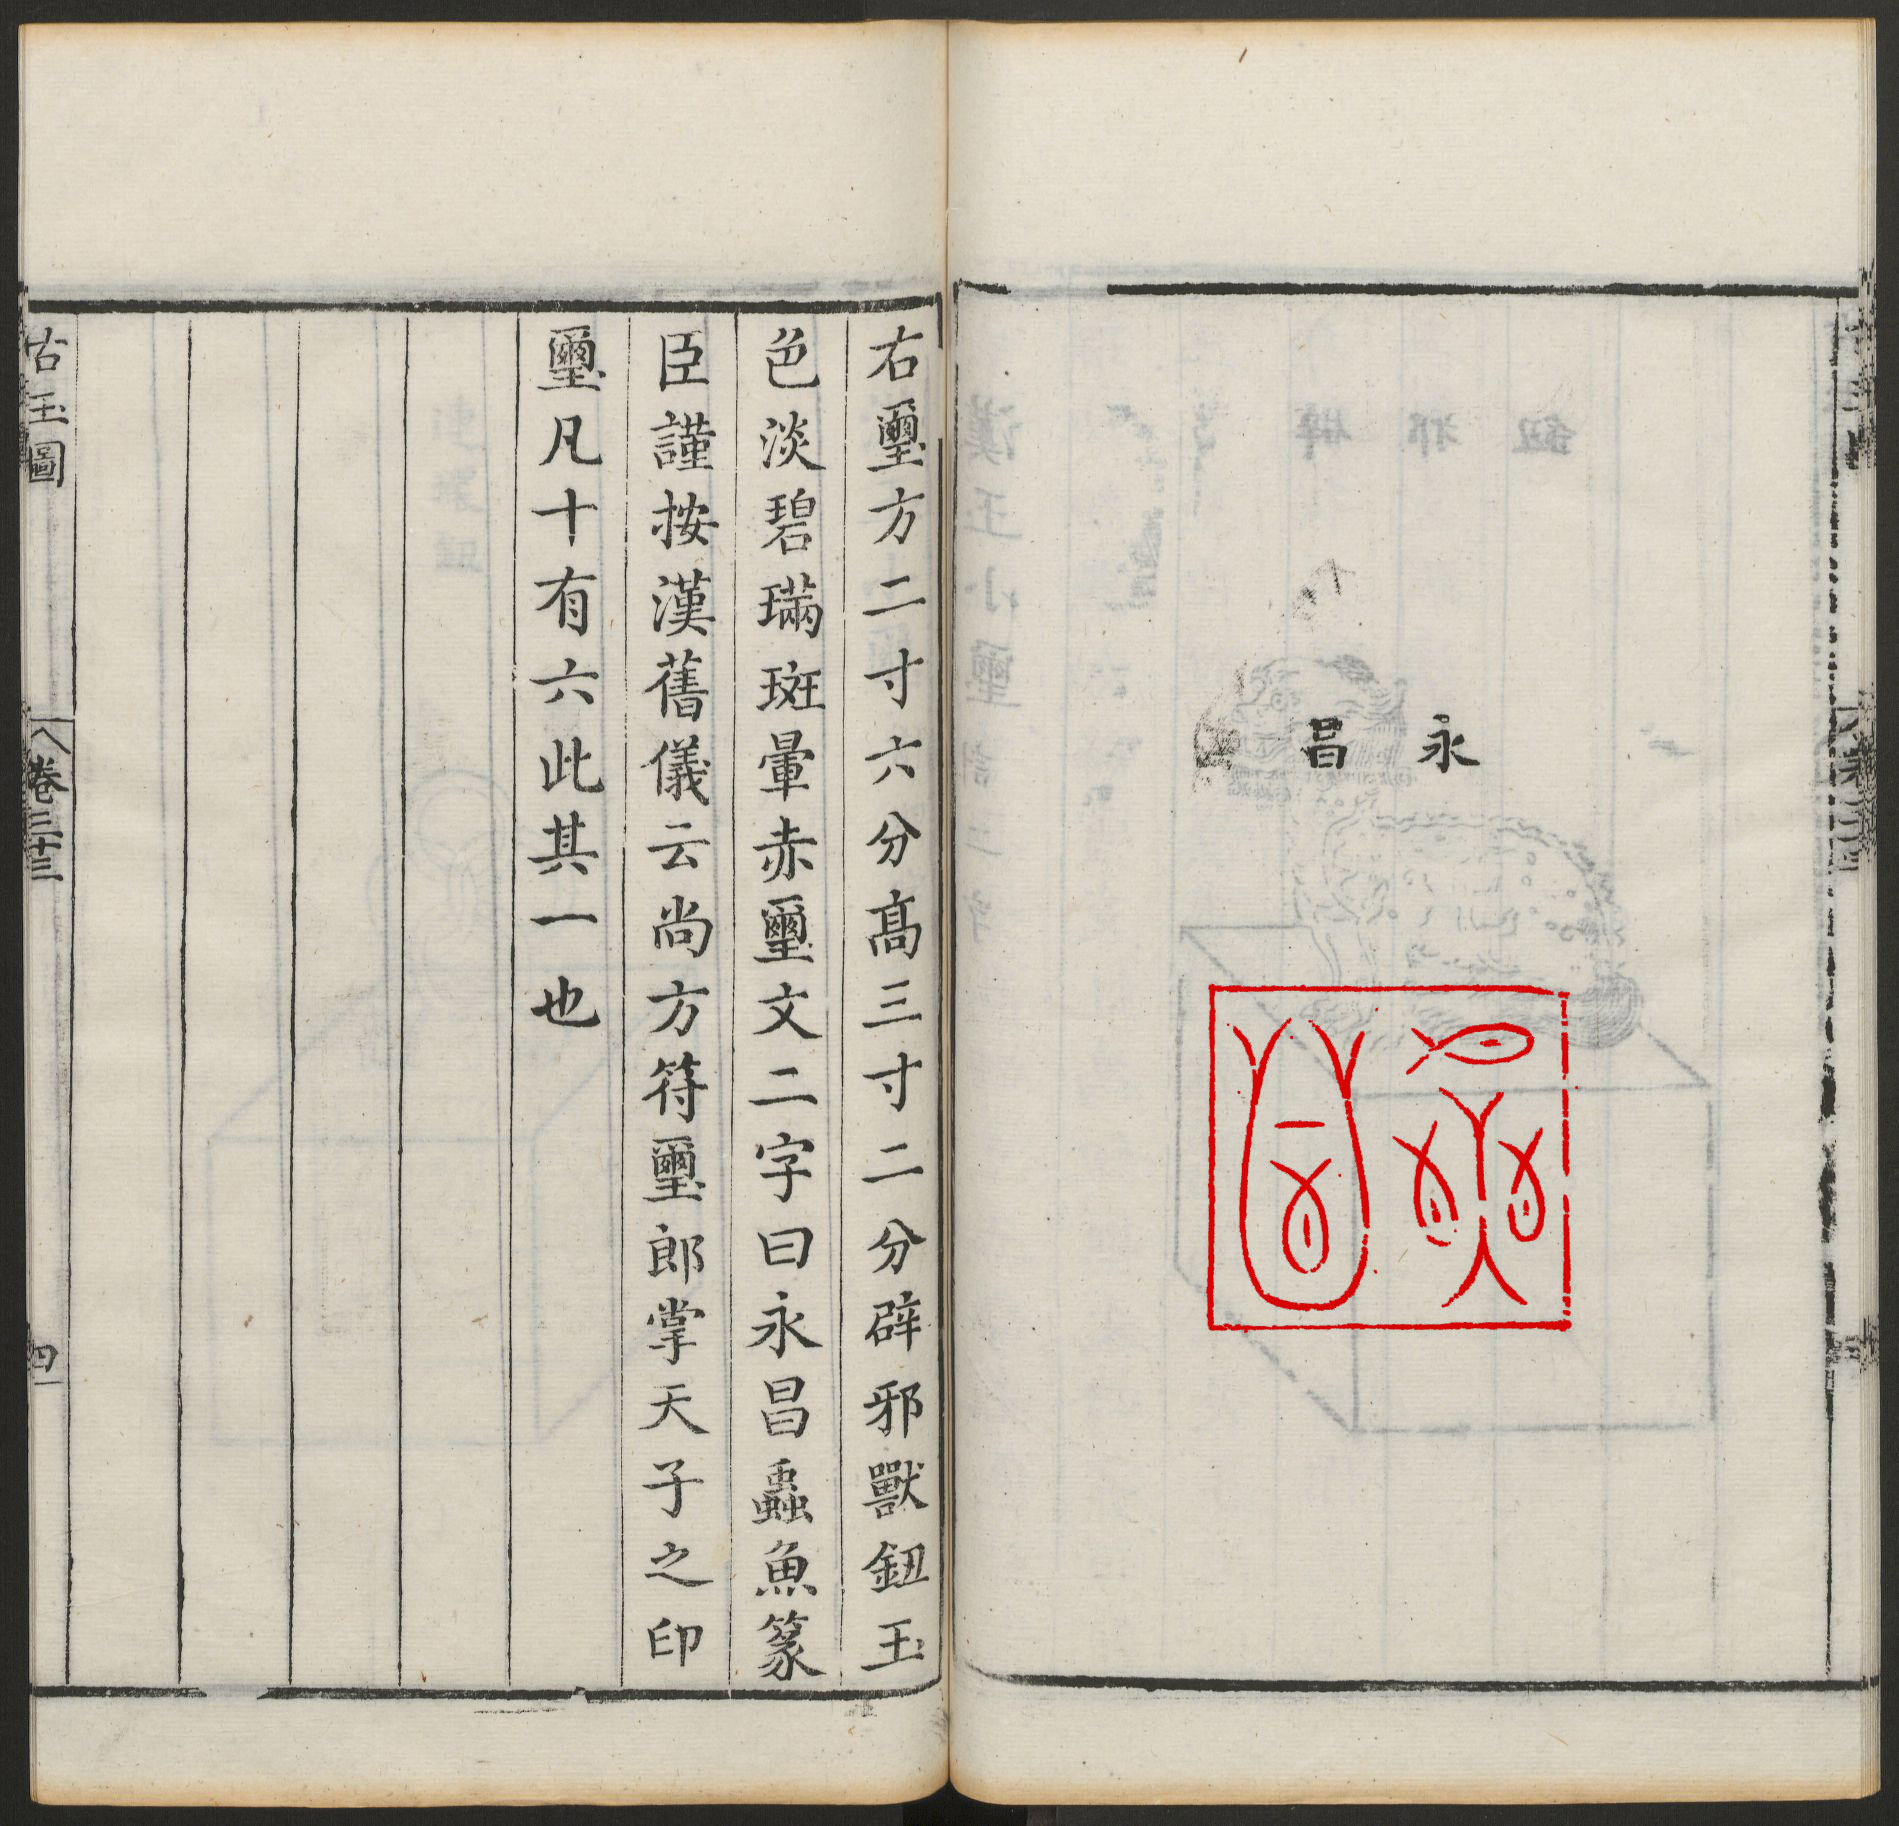 永昌
右璽方二寸六分高三寸二分辟邪獸鈕玉
色淡碧璊斑暈赤璽文二字曰永昌蟲魚篆
臣謹按漢舊儀云尚方符璽郎掌天子之印
璽凡十有六此其一也
古玉圖
卷三十三
四